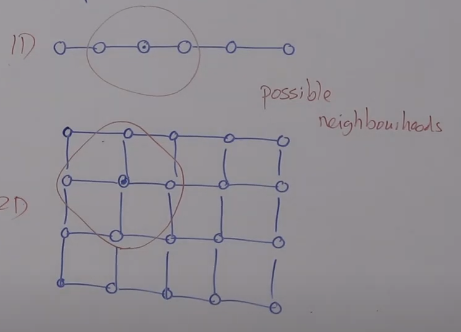 1D
possible
neighbourheads
2D